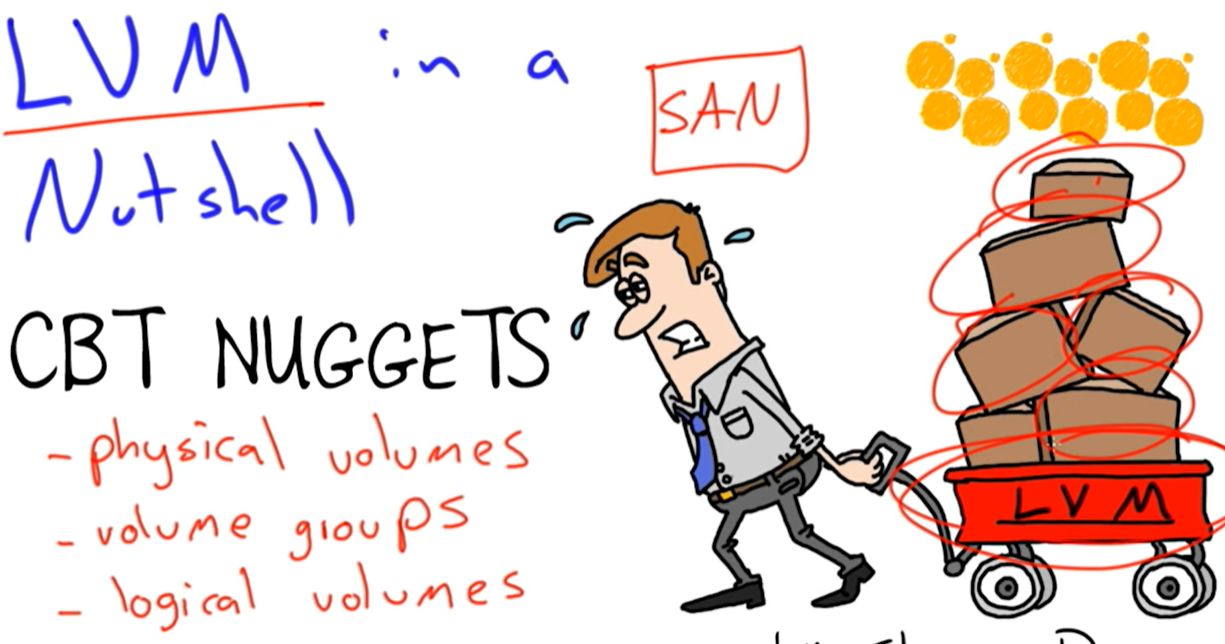 LVM in a
Nutshell
SAN
CBT NUGGETS
- physical volumes
- volume groups
- logical volumes
LVM